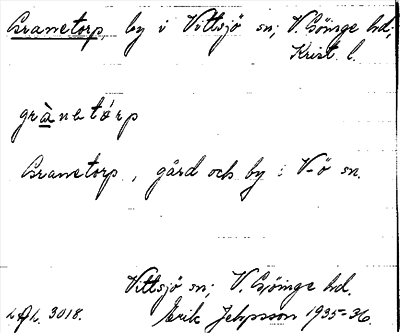 Granetorp, by i Vittsjö sn; V. Göinge hd;
Krist. l.
grànetórp
Granetorp, gård och by i V-ö sn.
Vittsjö sn; V. Göinge hd.
3018. Erik Jeppsson 1935-36